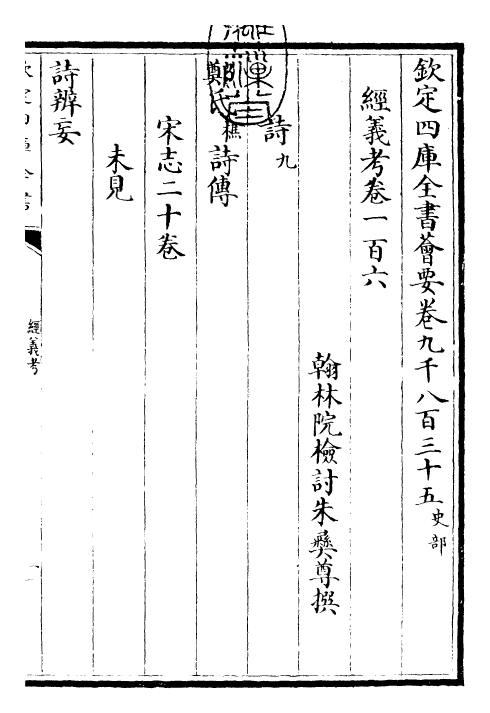 欽定四庫全書薈要卷九千八百三十五史部
經義考卷一百六
翰林院檢討朱彝尊撰
詩九
鄭氏樵詩傳
宋志二十卷
未見
詩辨妄
經義考